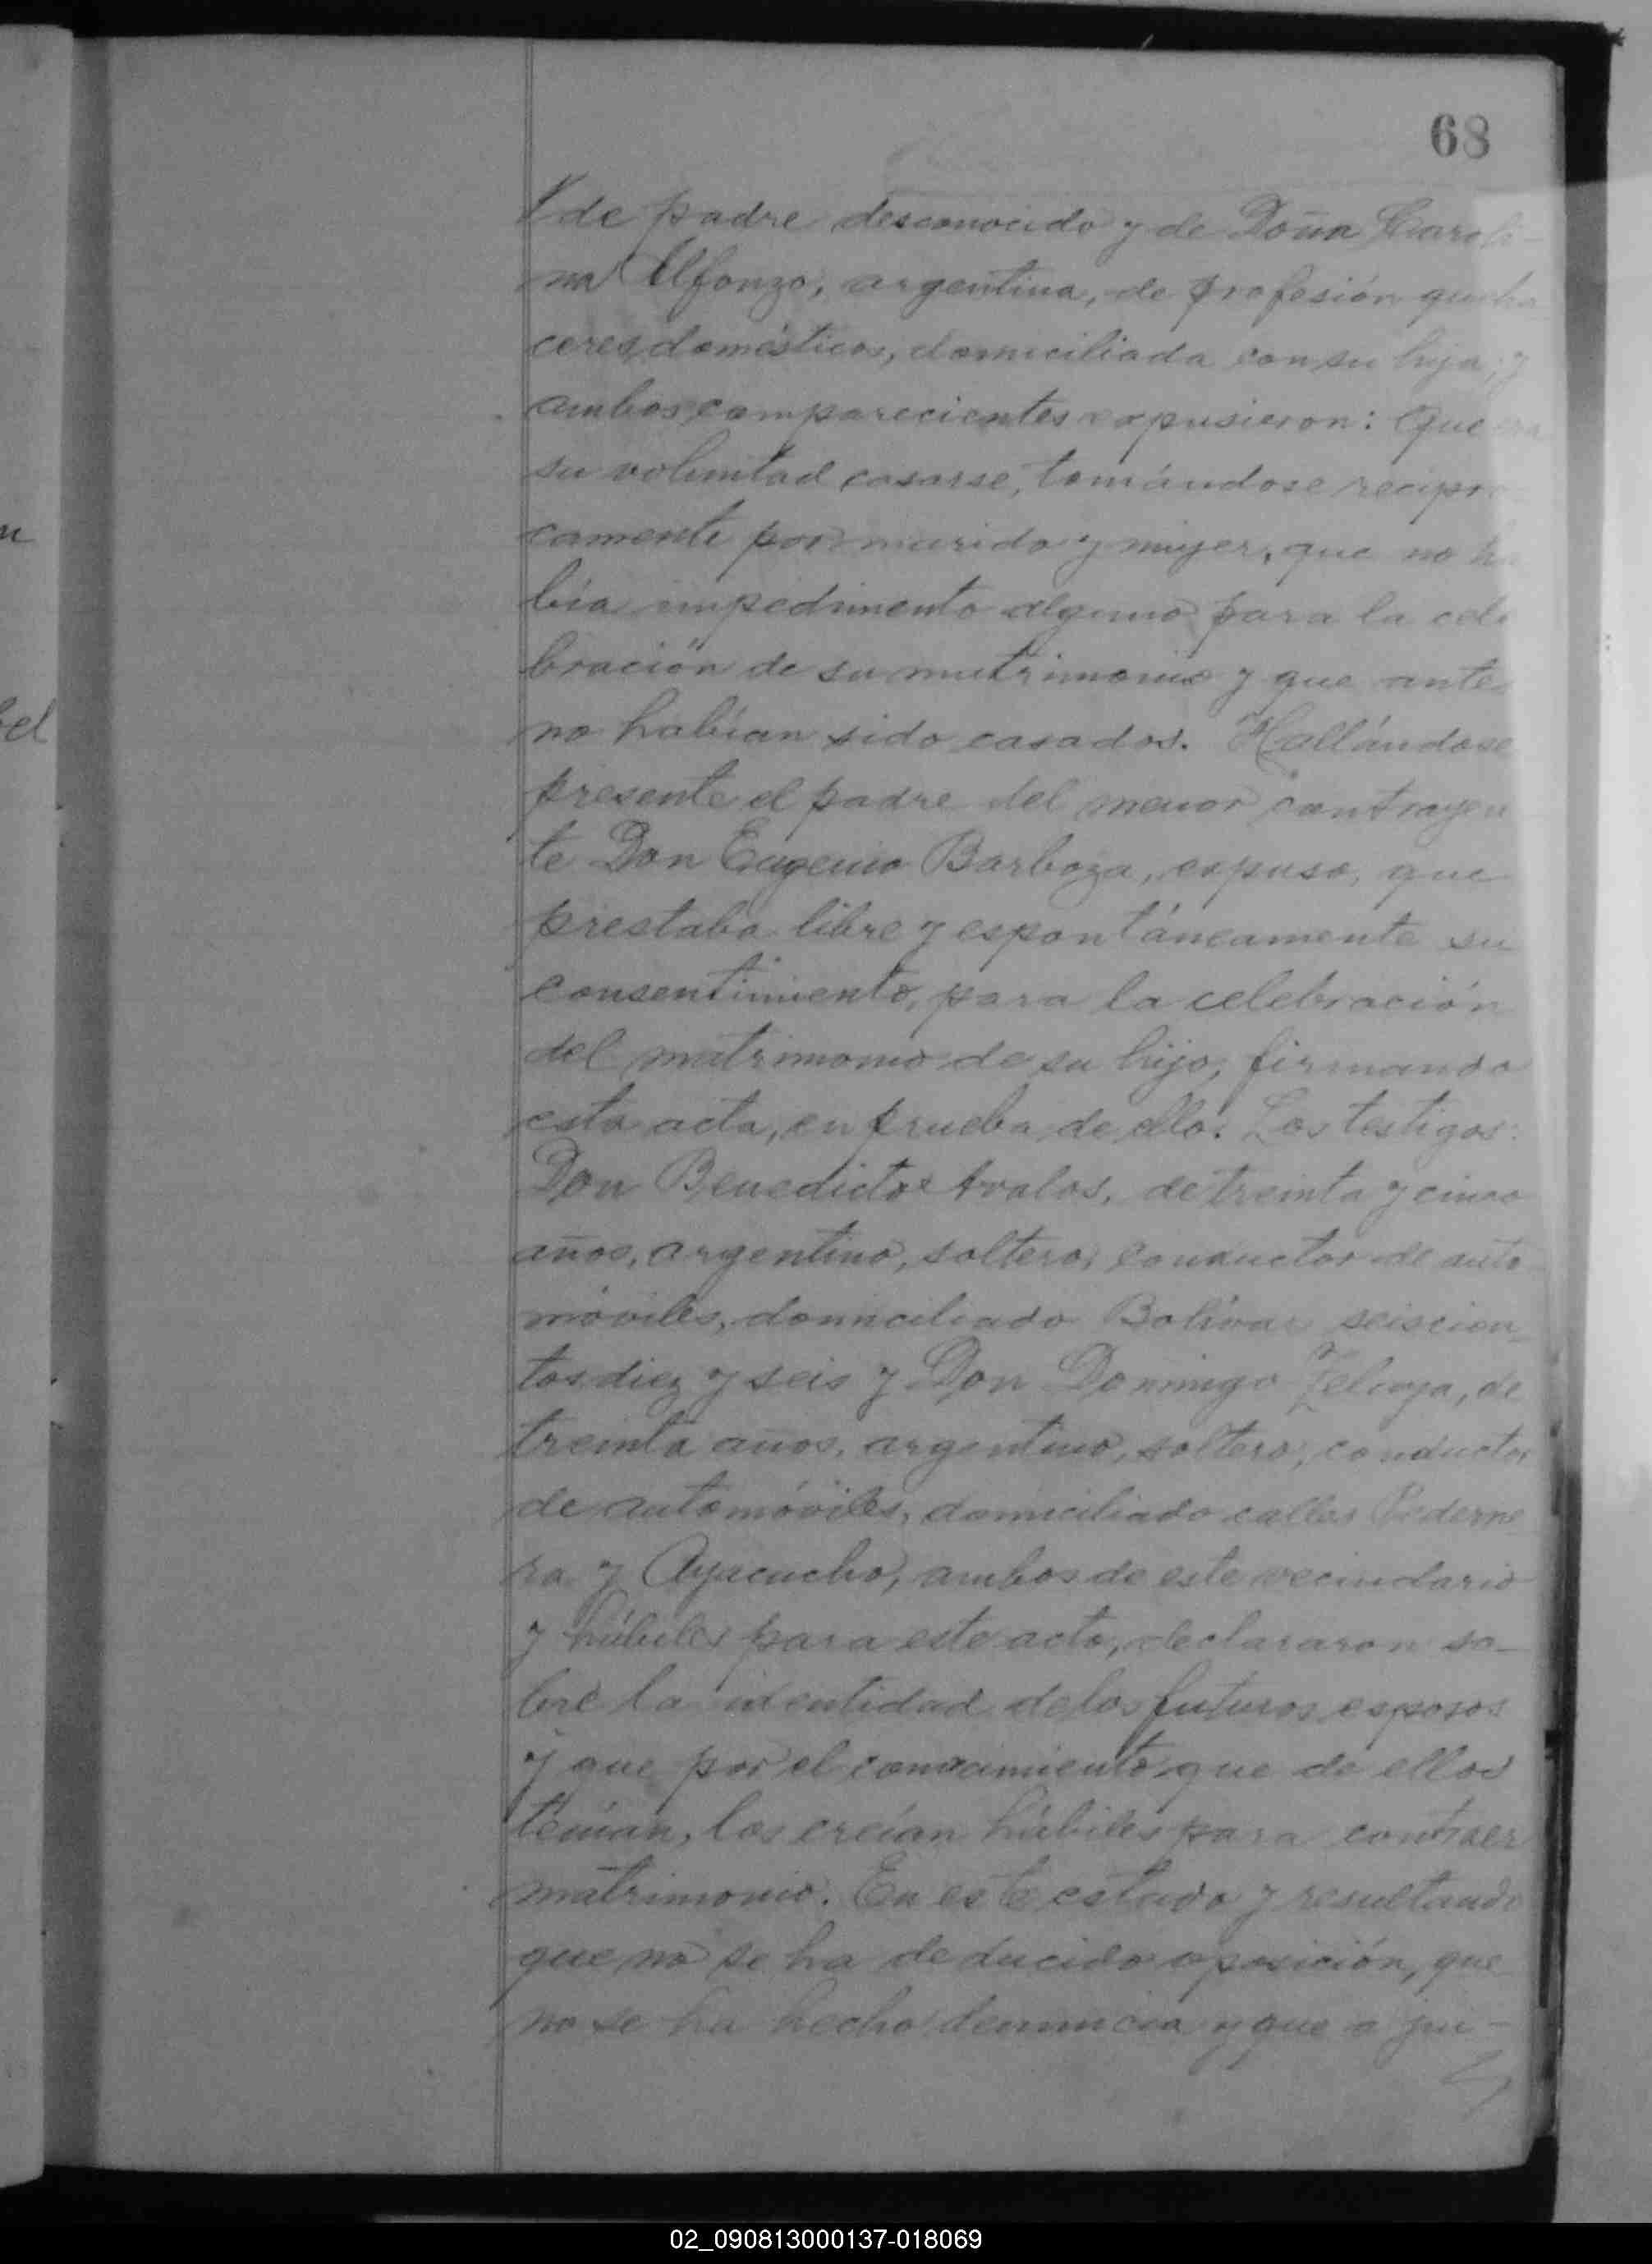 68
de padre desconocido y de Doña Caroli-
na Alfonzo, argentina, de profesión queha
ceres domésticos, domiciliada con su hija; y
ambos comparecientes expusieron: Que era
su voluntad casarse, tomándose recipro
camente por marido y mujer, que no ha
bía impedimento alguno para la cele
bración de su matrimonio y que antes
no habían sido casados. Hallándose
presente el padre del menor contrayen
te Don Eugenio Barboza, expuso, que
prestaba libre y espontáneamente su
consentimiento, para la celebración
del matrimonio de su hijo, firmando
esta acta, en prueba de ello. Los testigos:
Don Benedicto Avalos, de treinta y cinco
años, argentino, soltero, conductor de auto
móviles, domiciliado Bolívar seiscien
tos diez y seis y Don Domingo Zelaya, de
treinta años, argentino, soltero, conductor
de automóviles, domiciliado calles Pederne
ra y Ayacucho, ambos de este vecindario
y hábiles para este acto, declararon so-
bre la identidad de los futuros esposos
y que por el conocimiento que de ellos
tenían, los creían hábiles para contraer
matrimonio. En este estado y resultando
que no se ha deducido oposición, que
no se ha hecho denuncia y que a jui-
n
el
02_090813000137-018069